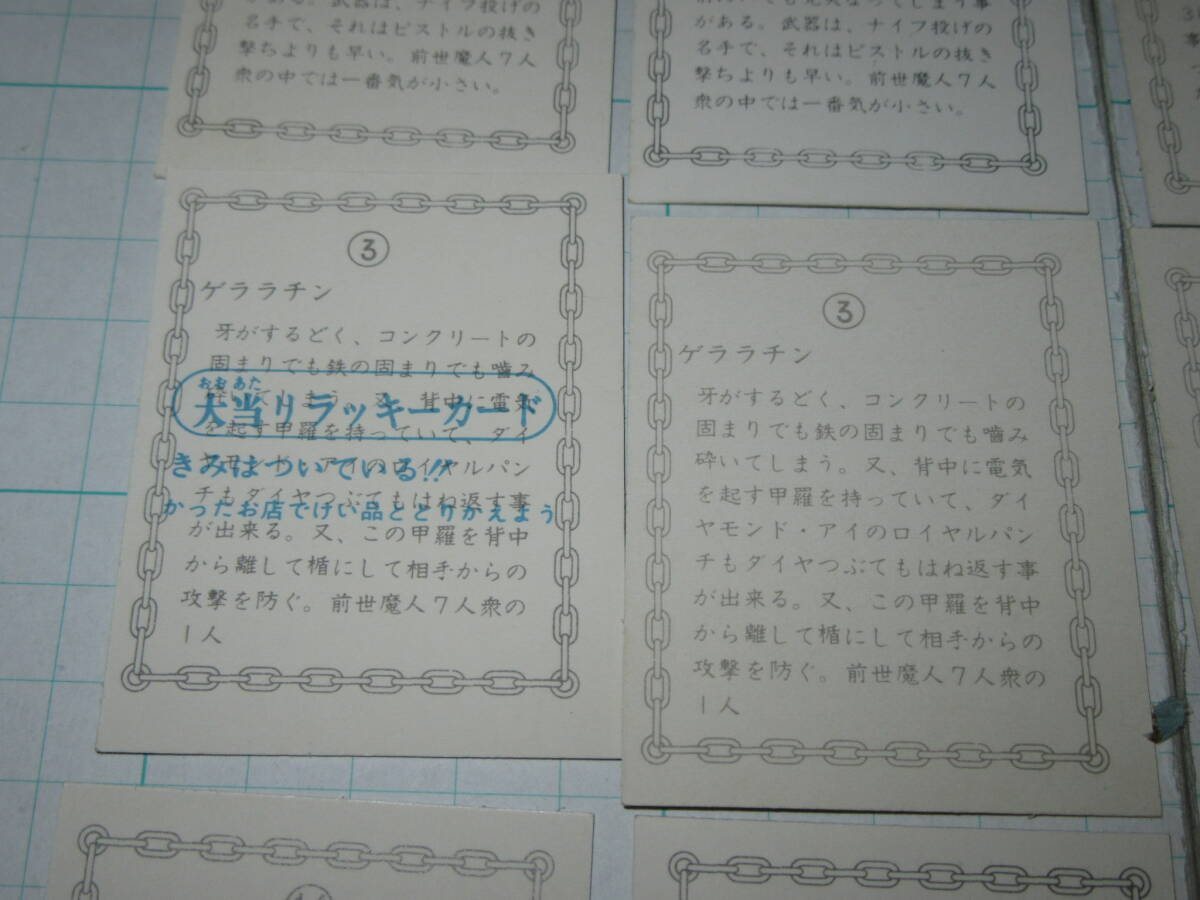 がある。武器は、ナイフ投げの
名手で、それはピストルの抜き
撃ちよりも早い。前世魔人7人
衆の中では一番気が小さい。
がある。武器は、ナイフ投げの
名手で、それはピストルの抜き
撃ちよりも早い。前世魔人7人
衆の中では一番気が小さい。
③
ゲララチン
牙がするどく、コンクリートの
固まりでも鉄の固まりでも噛み
砕いてしまう。又、背中に電気
を起す甲羅を持っていて、ダイ
ヤモンド・アイのロイヤルパン
チもダイヤつぶてもはね返す事
が出来る。又、この甲羅を背中
から離して楯にして相手からの
攻撃を防ぐ。前世魔人7人衆の
1人
おおあた
大当りラッキーカード
きみはついている!!
かったお店でけい品ととりかえよう
③
ゲララチン
牙がするどく、コンクリートの
固まりでも鉄の固まりでも噛み
砕いてしまう。又、背中に電気
を起す甲羅を持っていて、ダイ
ヤモンド・アイのロイヤルパン
チもダイヤつぶてもはね返す事
が出来る。又、この甲羅を背中
から離して楯にして相手からの
攻撃を防ぐ。前世魔人7人衆の
1人